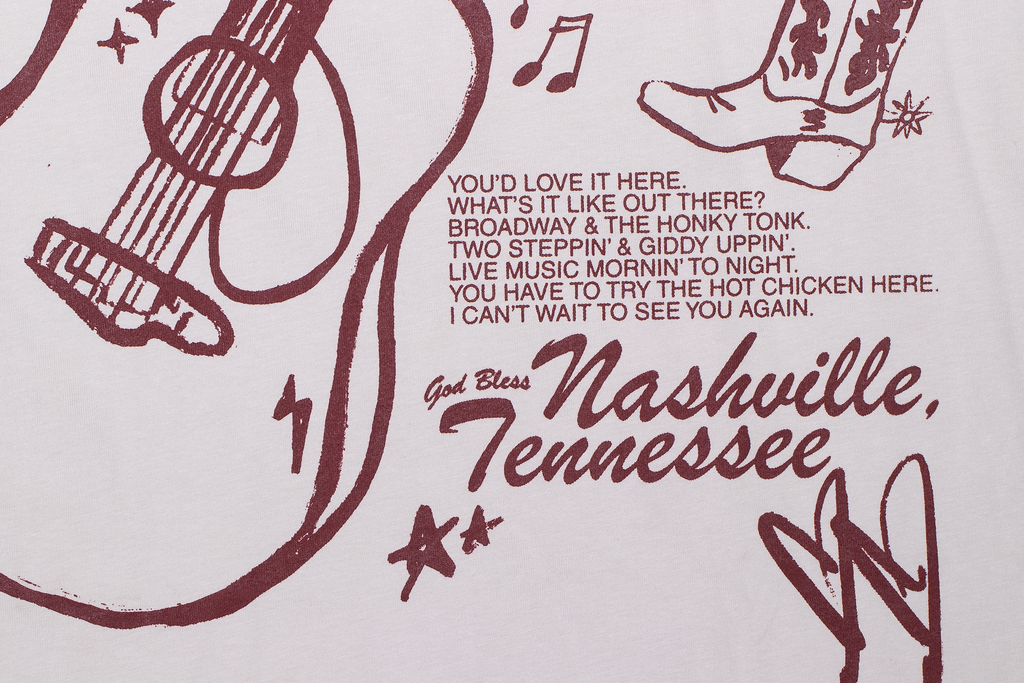 YOU'D LOVE IT HERE.
WHAT'S IT LIKE OUT THERE?
BROADWAY & THE HONKY TONK.
TWO STEPPIN' & GIDDY UPPIN'.
LIVE MUSIC MORNIN' TO NIGHT.
YOU HAVE TO TRY THE HOT CHICKEN HERE.
I CAN'T WAIT TO SEE YOU AGAIN.
God Bless Nashville,
Tennessee